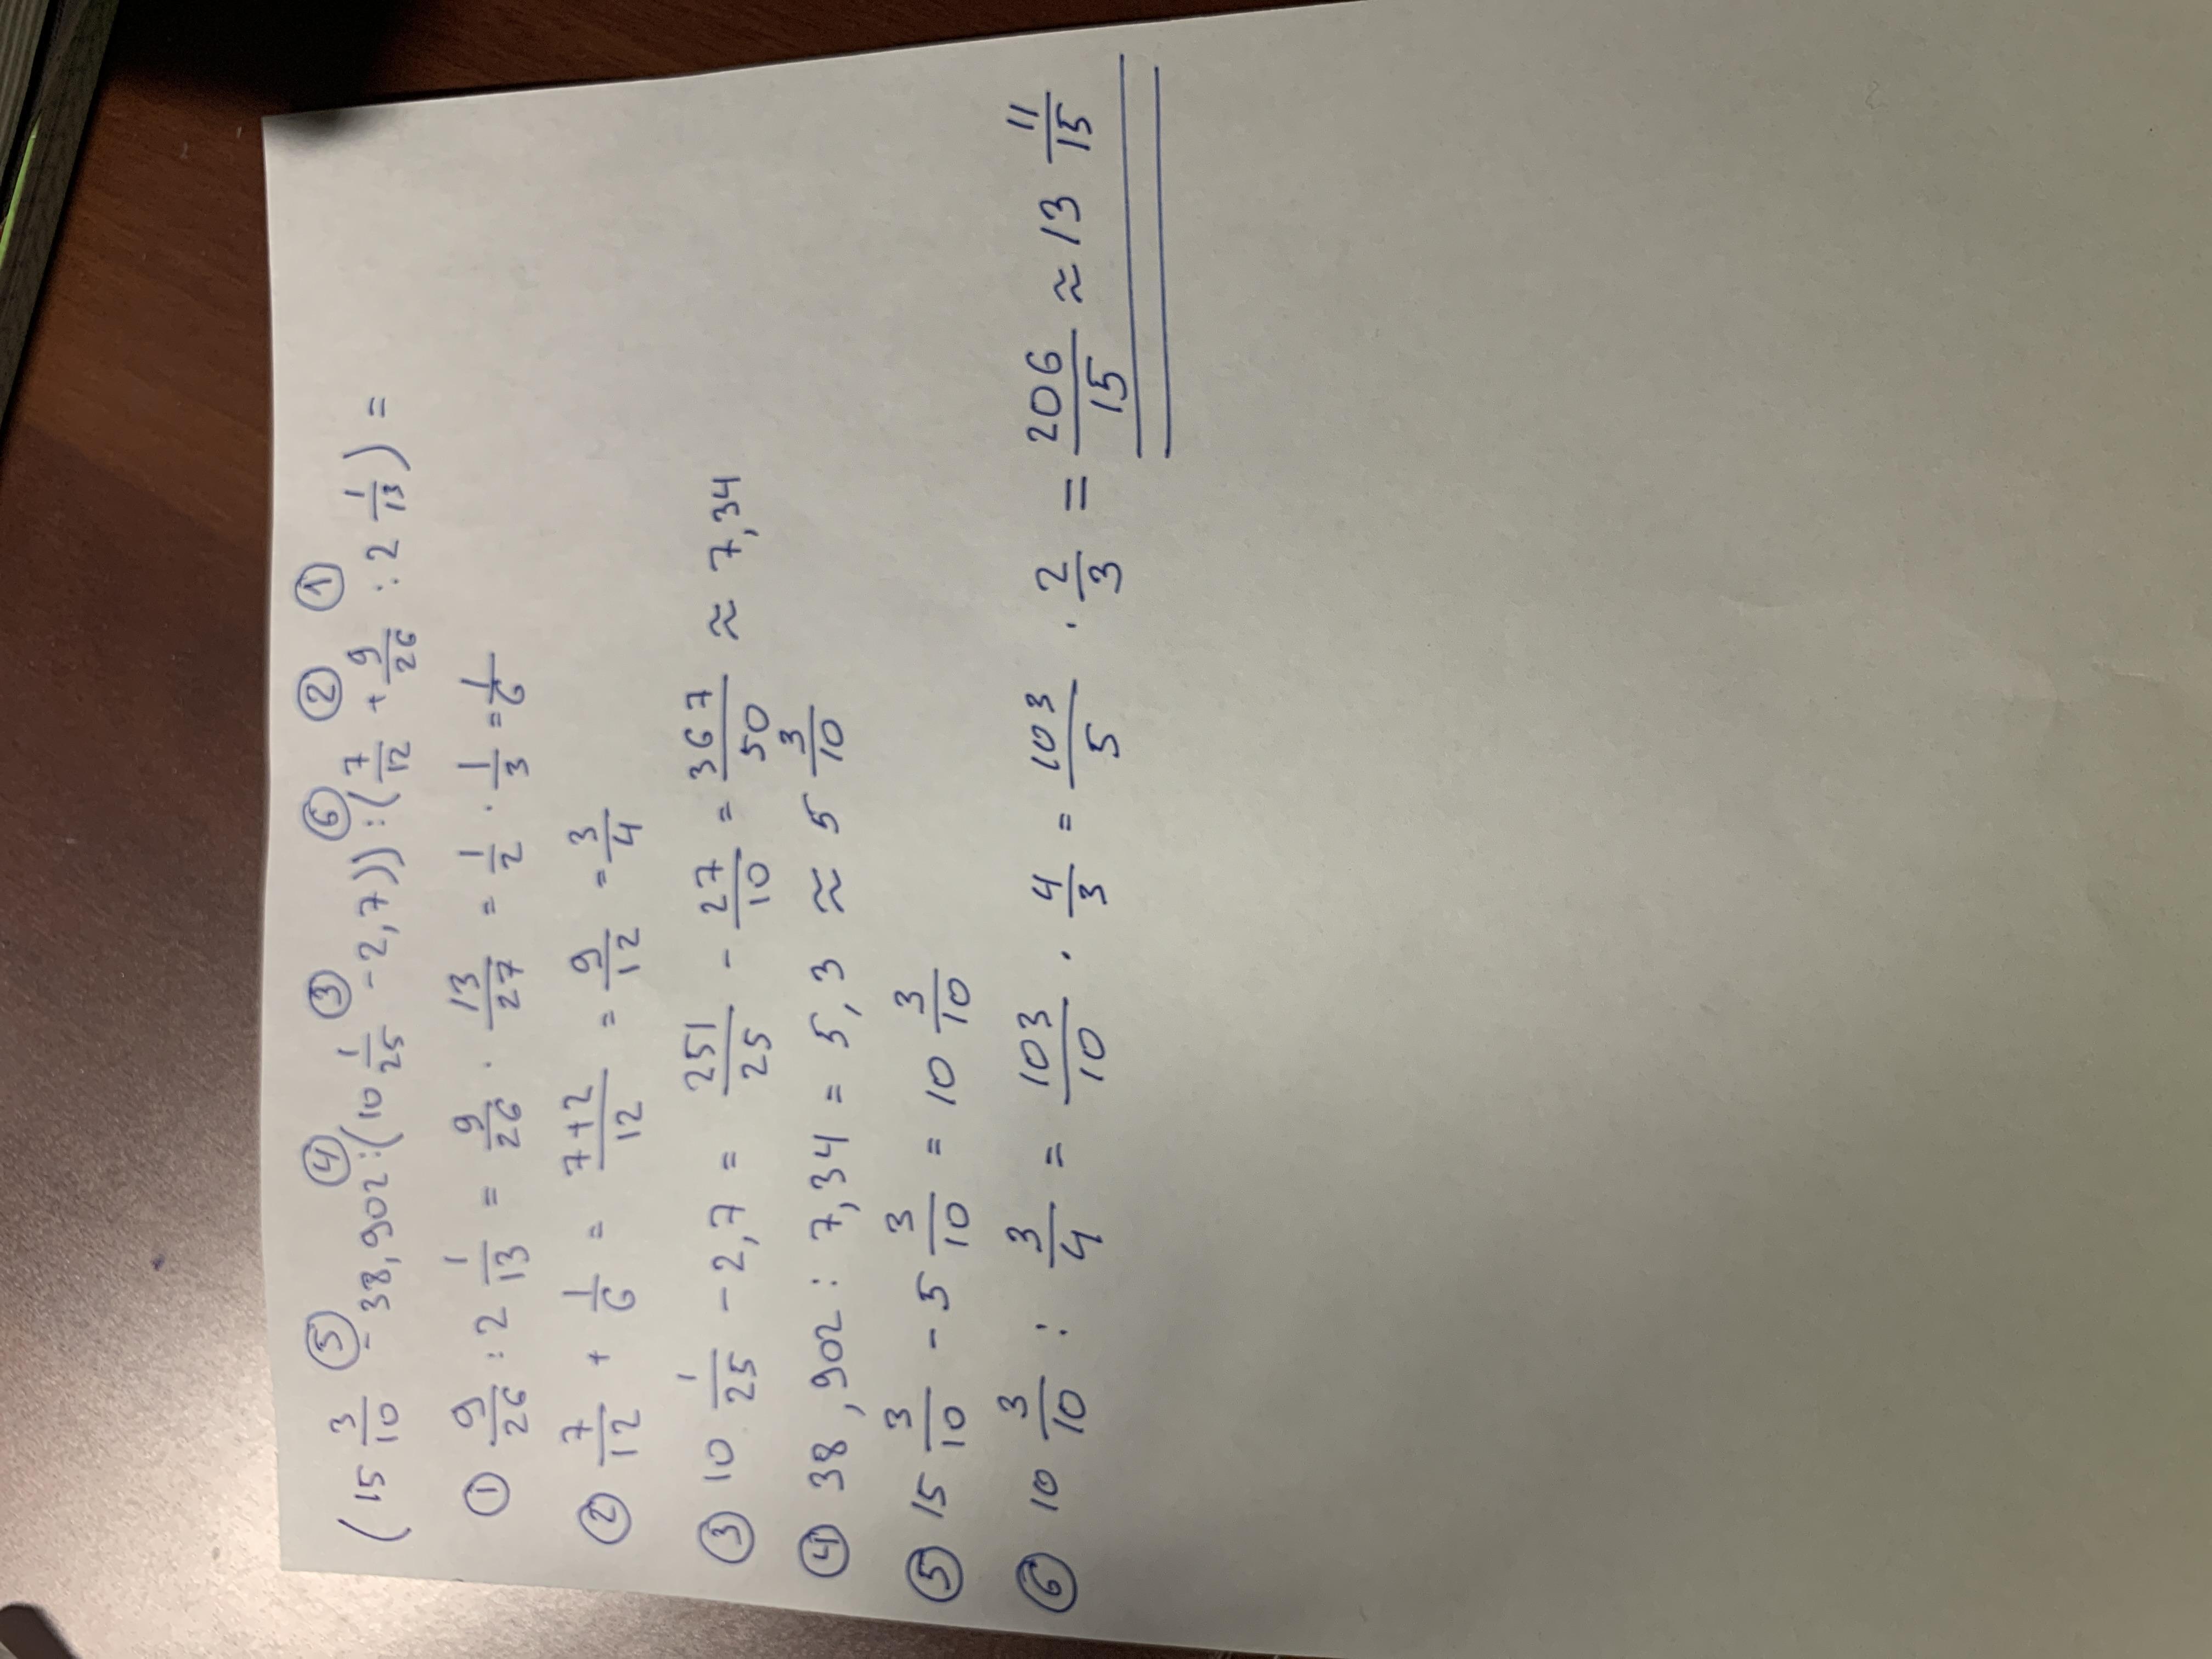 ⑤ ④ ③ ⑥ ② ①
(15 3/10 - 38,902 : (10 1/25 - 2,7)) : (7/12 + 9/26 : 2 1/13) =
① 9/26 : 2 1/13 = 9/26 · 13/27 = 1/2 · 1/3 = 1/6
② 7/12 + 1/6 = 7+2/12 = 9/12 = 3/4
③ 10 1/25 - 2,7 = 251/25 - 27/10 = 367/50 ≈ 7,34
④ 38,902 : 7,34 = 5,3 ≈ 5 3/10
⑤ 15 3/10 - 5 3/10 = 10 3/10
⑥ 10 3/10 : 3/4 = 103/10 · 4/3 = 103/5 · 2/3 = 206/15 ≈ 13 11/15